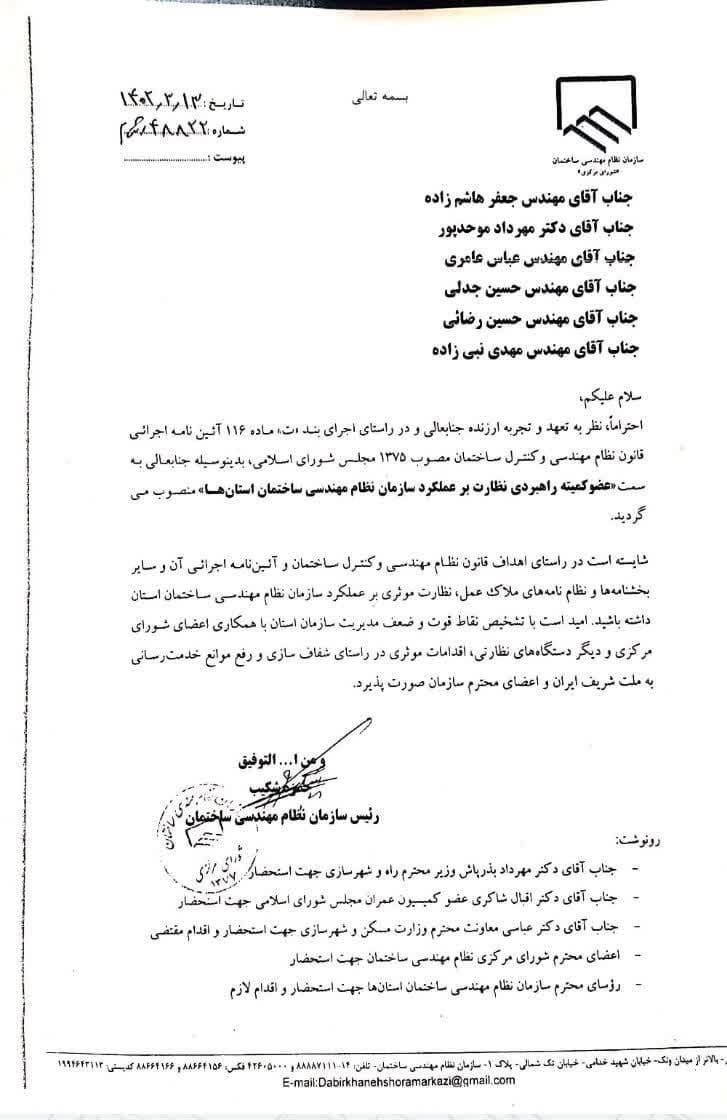 بسمه تعالی
تاریخ: ۱۴۰۲٫۳٫۱۳
شماره: ۴۸۸۲۲
پیوست :
سازمان نظام مهندسی ساختمان
«شورای مرکزی»
جناب آقای مهندس جعفر هاشم زاده
جناب آقای دکتر مهرداد موحدپور
جناب آقای مهندس عباس عامری
جناب آقای مهندس حسین جدلی
جناب آقای مهندس حسین رضائی
جناب آقای مهندس مهدی نبی زاده
سلام علیکم،
احتراماً، نظر به تعهد و تجربه ارزنده جنابعالی و در راستای اجرای بند «ت» ماده ۱۱۶ آئین نامه اجرائی
قانون نظام مهندسی و کنترل ساختمان مصوب ۱۳۷۵ مجلس شورای اسلامی، بدینوسیله جنابعالی به
سمت «عضو کمیته راهبردی نظارت بر عملکرد سازمان نظام مهندسی ساختمان استان‌ها» منصوب می
گردید.
شایسته است در راستای اهداف قانون نظام مهندسی و کنترل ساختمان و آئین‌نامه اجرائی آن و سایر
بخشنامه‌ها و نظام نامه‌های ملاک عمل، نظارت موثری بر عملکرد سازمان نظام مهندسی ساختمان استان
داشته باشید. امید است با تشخیص نقاط قوت و ضعف مدیریت سازمان استان با همکاری اعضای شورای
مرکزی و دیگر دستگاه‌های نظارتی، اقدامات موثری در راستای شفاف سازی و رفع موانع خدمت‌رسانی
به ملت شریف ایران و اعضای محترم سازمان صورت پذیرد.
و من ا... التوفیق
شکیب
رئیس سازمان نظام مهندسی ساختمان
شورای مرکزی
۱۳۷۷
رونوشت:
- جناب آقای دکتر مهرداد بذرپاش وزیر محترم راه و شهرسازی جهت استحضار
- جناب آقای دکتر اقبال شاکری عضو کمیسیون عمران مجلس شورای اسلامی جهت استحضار
- جناب آقای دکتر عباسی معاونت محترم وزارت مسکن و شهرسازی جهت استحضار و اقدام مقتضی
- اعضای محترم شورای مرکزی نظام مهندسی ساختمان جهت استحضار
- رؤسای محترم سازمان نظام مهندسی ساختمان استان‌ها جهت استحضار و اقدام لازم
- بالاتر از میدان ونک- خیابان شهید خدامی- خیابان تک شمالی- پلاک ۱- سازمان نظام مهندسی ساختمان- تلفن: ۱۴-۸۸۸۸۷۱۱۱ و ۴۲۶۰۵۰۰۰ فکس: ۸۸۶۶۴۱۵۶ و ۸۸۶۶۴۱۶۶ کدپستی: ۱۹۹۴۶۴۳۱۱۳
E-mail:Dabirkhanehshoramarkazi@gmail.com